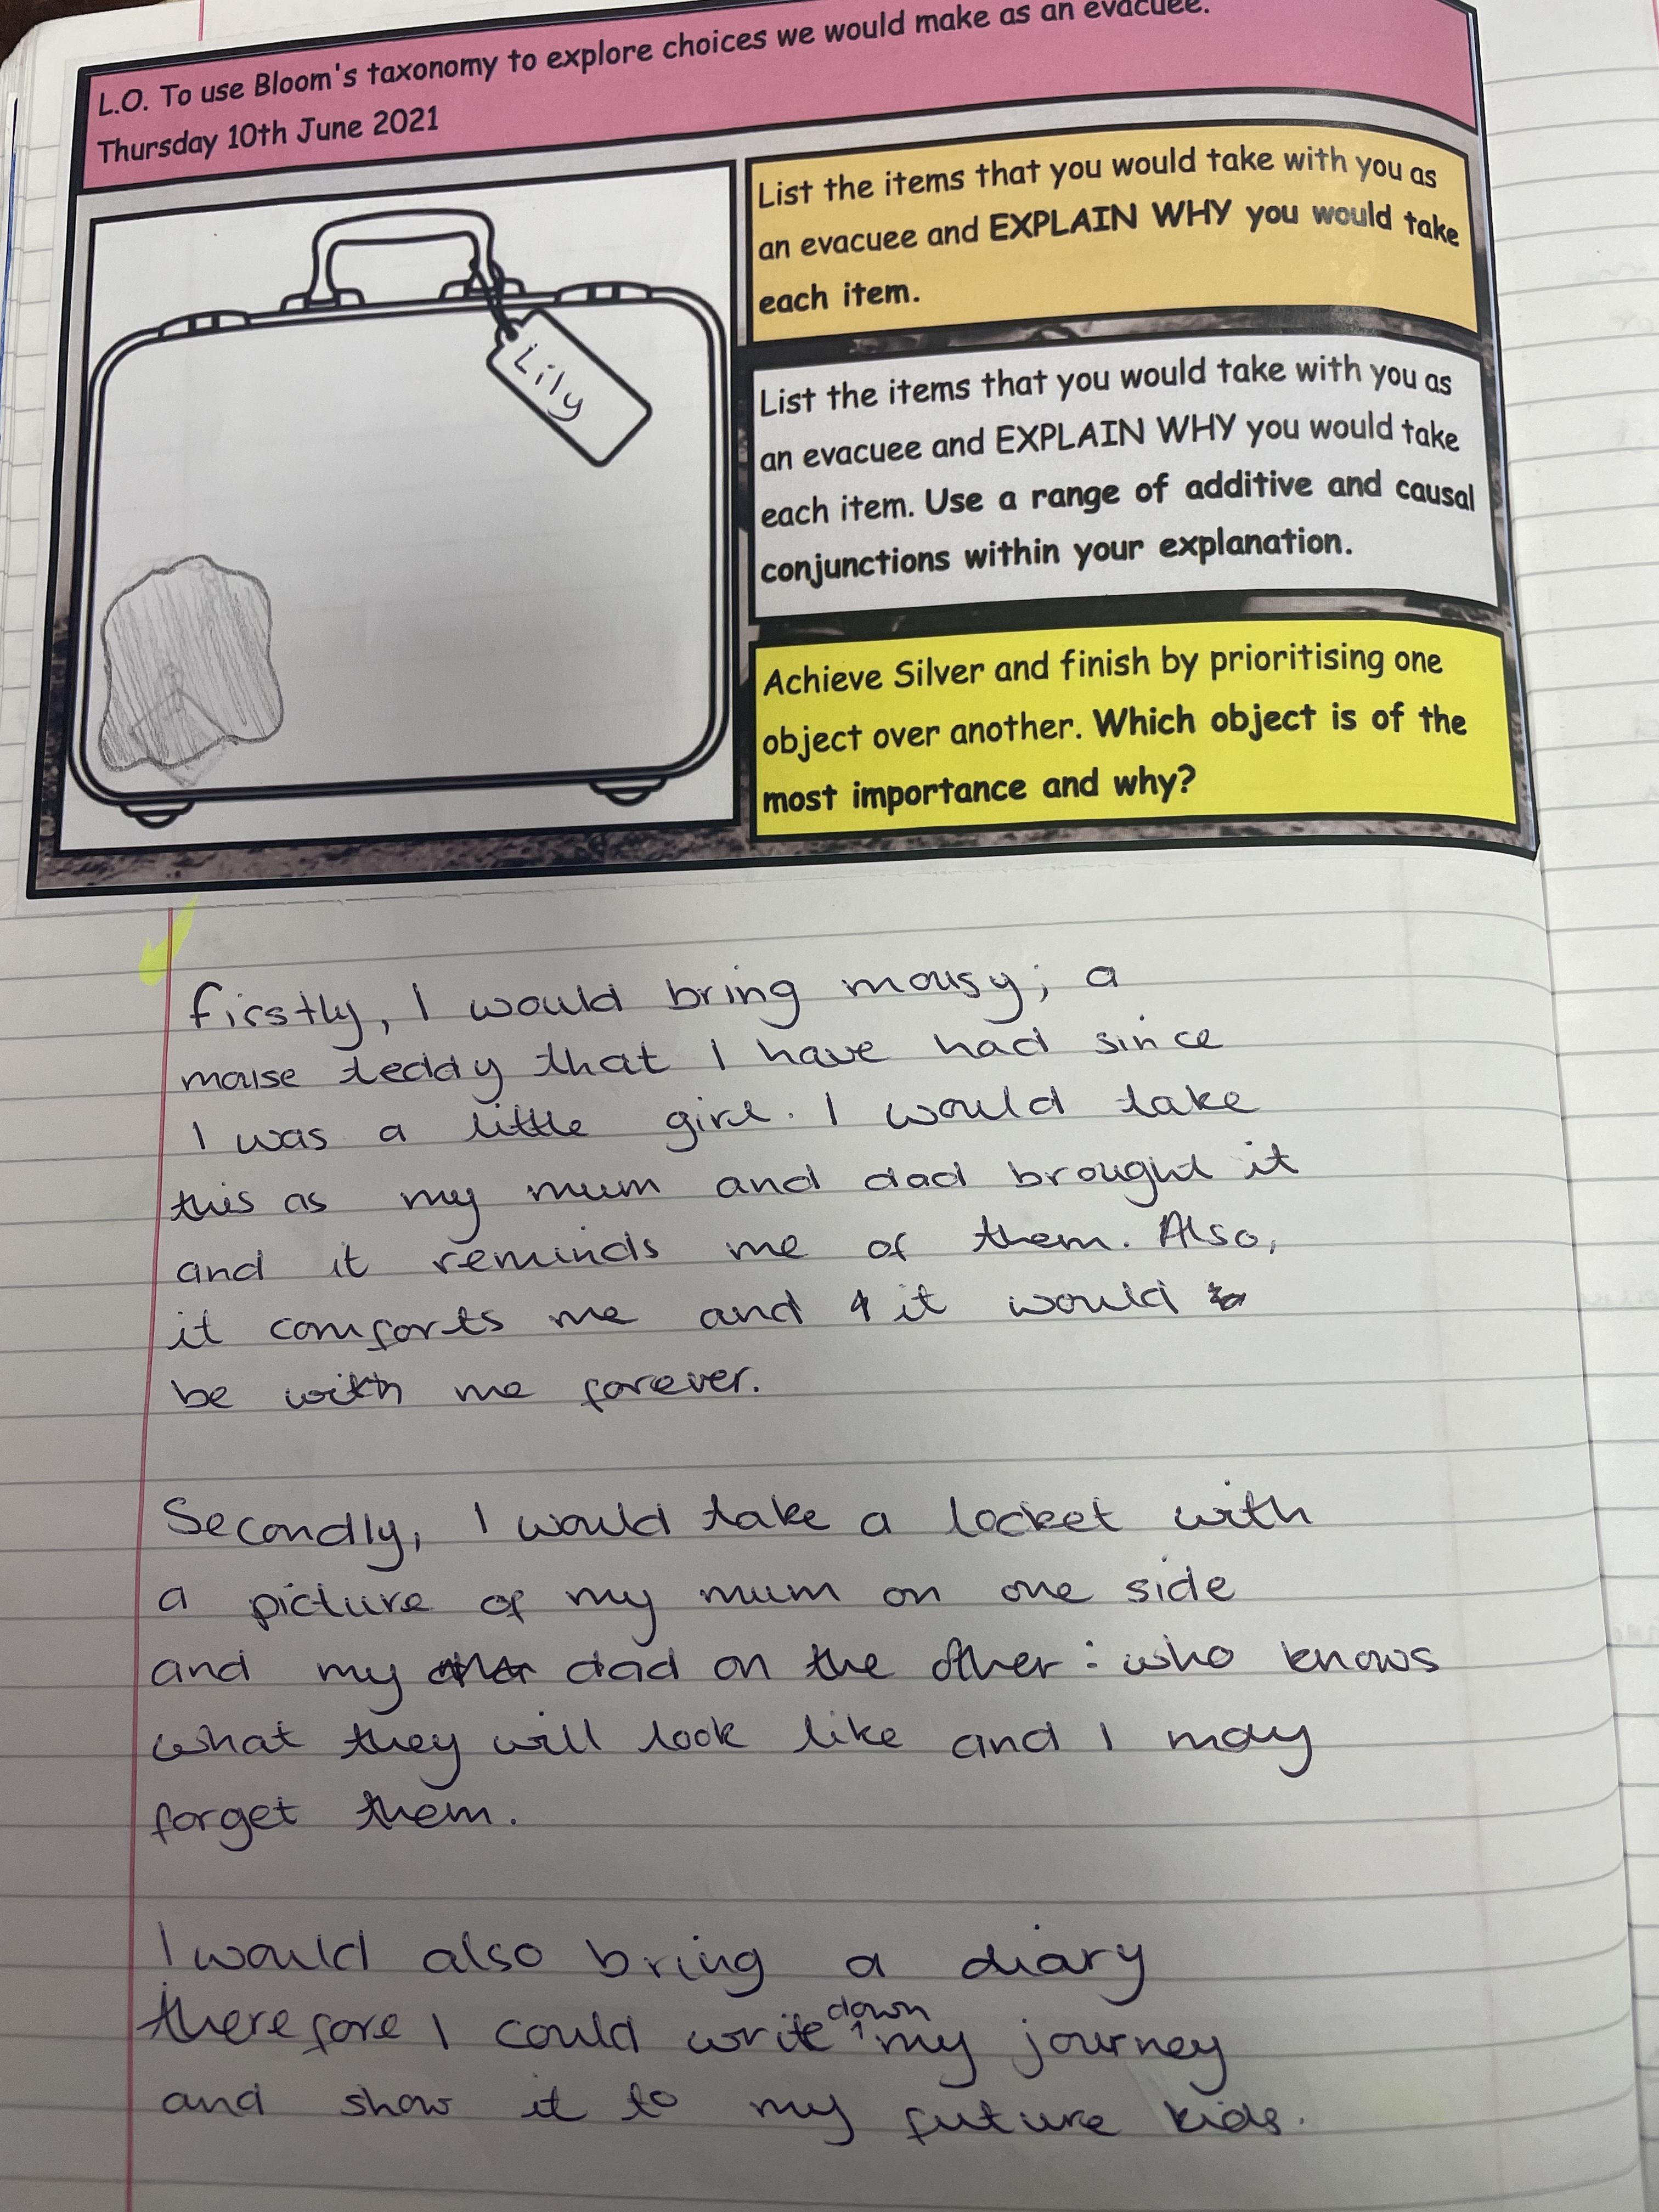 L.O. To use Bloom's taxonomy to explore choices we would make as an evacuee.
Thursday 10th June 2021
Lily
List the items that you would take with you as
an evacuee and EXPLAIN WHY you would take
each item.
List the items that you would take with you as
an evacuee and EXPLAIN WHY you would take
each item. Use a range of additive and causal
conjunctions within your explanation.
Achieve Silver and finish by prioritising one
object over another. Which object is of the
most importance and why?
firstly, I would bring mousy; a
mouse teddy that I have had since
I was a little girl. I would take
this as my mum and dad brought it
and it reminds me of them. Also,
it comforts me and it would
be with me forever.
Secondly, I would take a locket with
a picture of my mum on one side
and my dad on the other: who knows
what they will look like and I may
forget them.
I would also bring a diary
therefore I could write down my journey
and show it to my future kids.